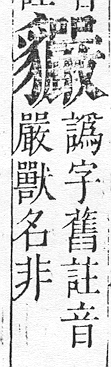 譌字舊註音
嚴獸名非